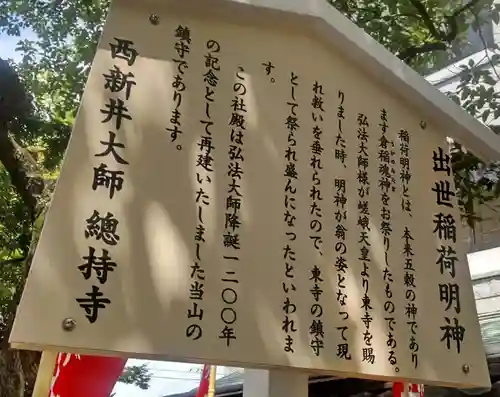 出世稲荷明神
稲荷明神とは、本来五穀の神であり
ます倉稲魂神をお祭りしたものである。
弘法大師様が嵯峨天皇より東寺を賜
りました時、明神が翁の姿となって現
れ救いを垂れられたので、東寺の鎮守
として祭られ盛んになったといわれま
す。
この社殿は弘法大師降誕一二〇〇年
の記念として再建いたしました当山の
鎮守であります。
西新井大師 總持寺